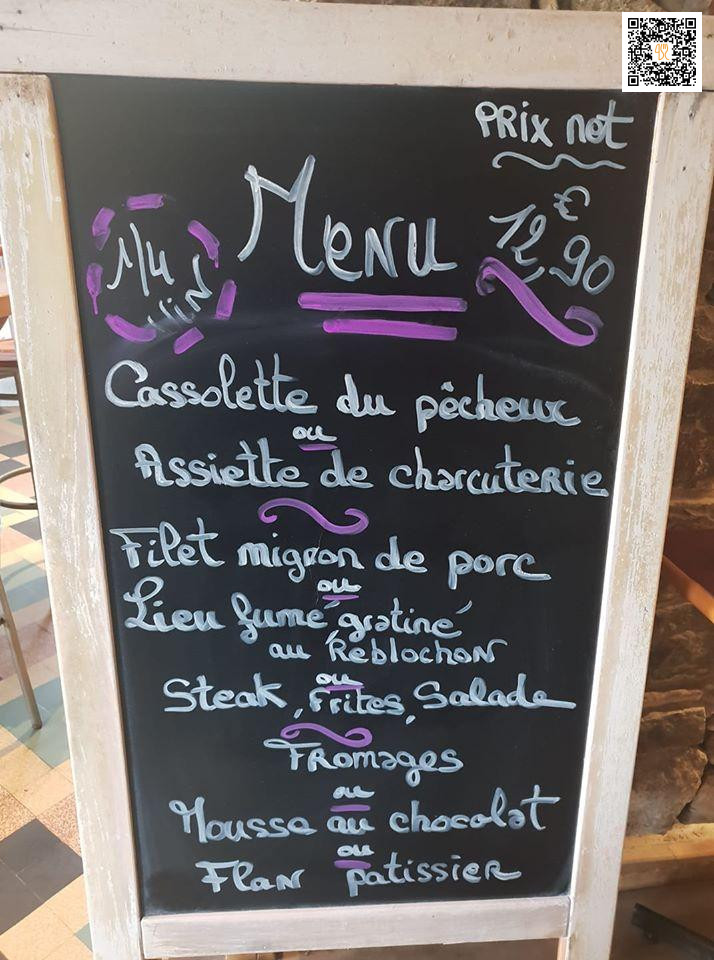 PRix net
Menu
€
12,90
1/4
vin
Cassolette du pêcheur
ou
Assiette de charcuterie
Filet mignon de porc
ou
Lieu fumé, gratiné
au Reblochon
ou
Steak, Frites, Salade
Fromages
ou
Mousse au chocolat
ou
Flan patissier